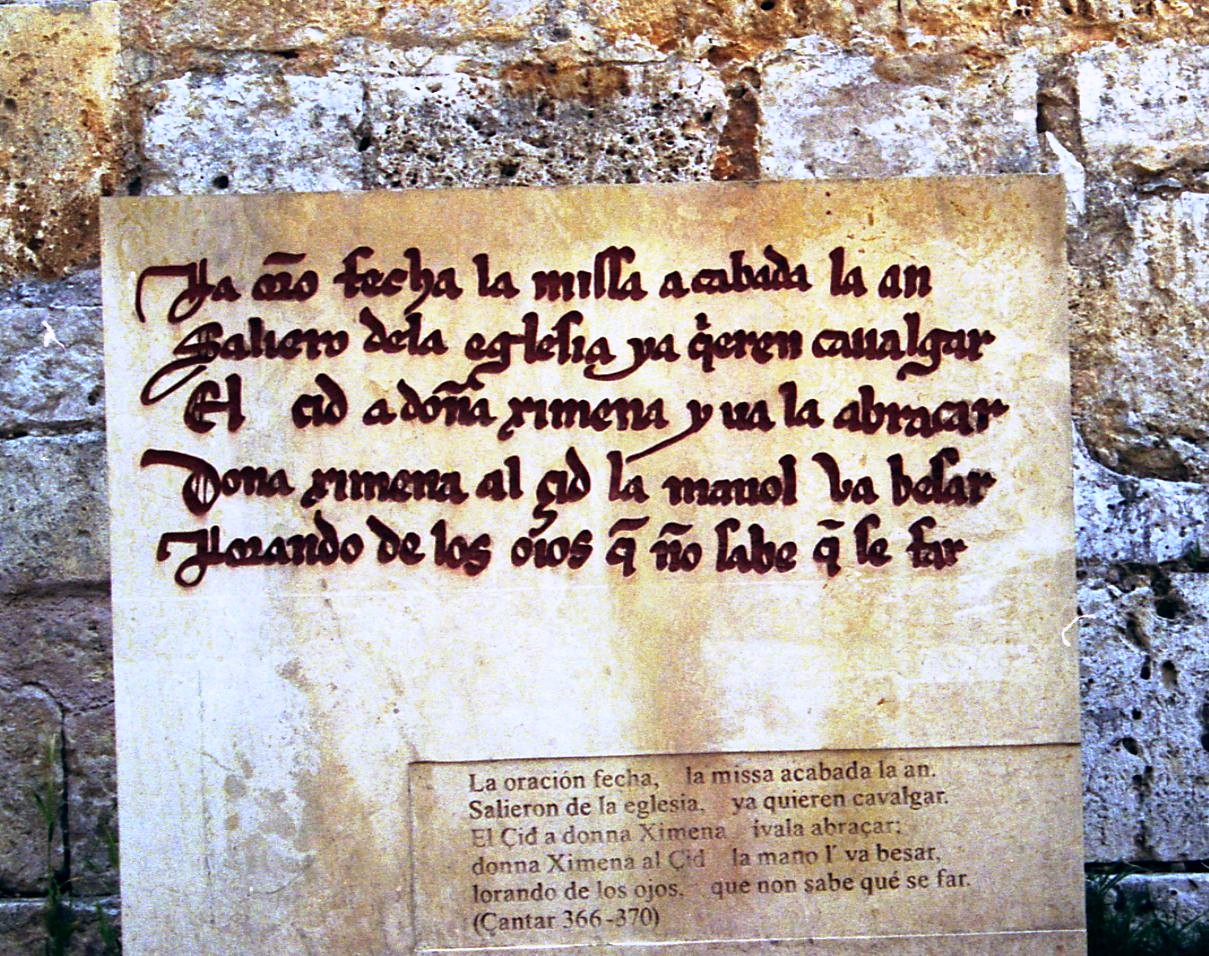 La oro fecha la missa acabada la an
Saliero dela eglesia ya q̇eren caualgar
El cid a doña ximena yua la abraçar
Dona ximena al çid la manol va besar
Llorando de los oios q̄ ño sabe q̄ se far
La oración fecha, la missa acabada la an.
Salieron de la eglesia, ya quieren cavalgar.
El Çid a donna Ximena ívala abraçar;
donna Ximena al Çid la mano l' va besar,
lorando de los ojos, que non sabe qué se far.
(Cantar 366-370)